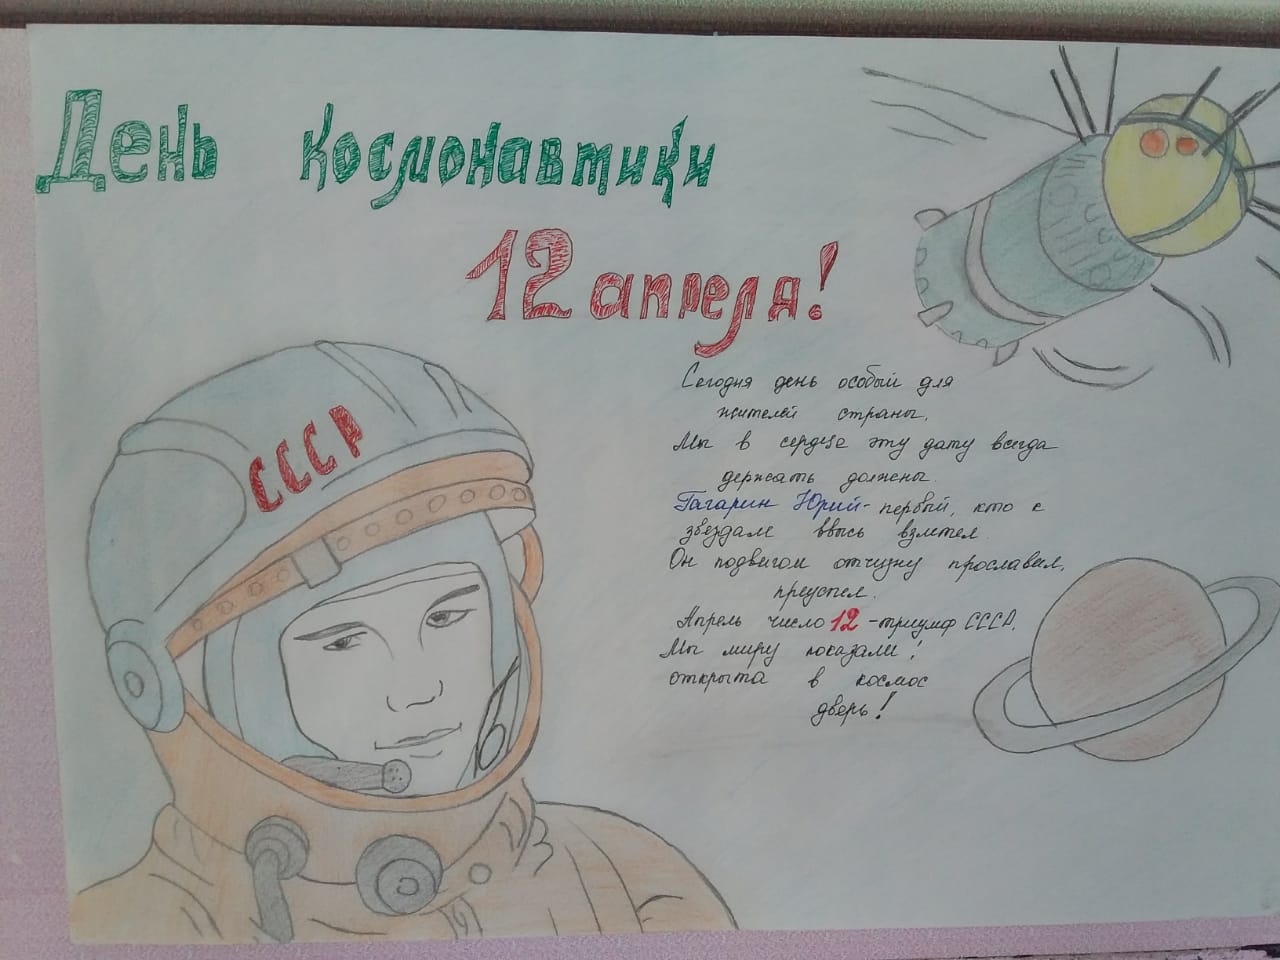 День космонавтики
12 апреля!
СССР
Сегодня день особый для
жителей страны,
Мы в сердце эту дату всегда
держать должены.
Гагарин Юрий - первый, кто к
звёздам ввысь взлетел.
Он подвигом отчизну прославил,
преуспел.
Апрель число 12 - триумф СССР,
Мы миру показали:
открыта в космос
дверь!